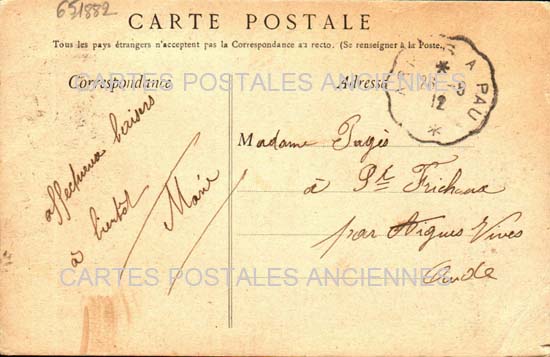 651882
CARTE POSTALE
Tous les pays étrangers n'acceptent pas la Correspondance au recto. (Se renseigner à la Poste.)
Correspondance
Adresse
A PAU
12
CARTES POSTALES ANCIENNES
affectueux baisers
à bientôt
Marie
Madame Pagès
à
par Aigues Vives
Aude
CARTES POSTALES ANCIENNES